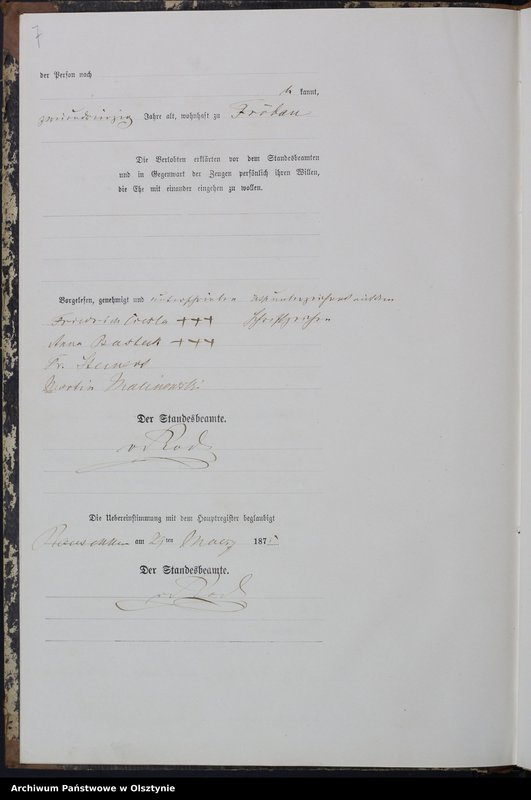 7
der Person nach
kannt,
zweiundvierzig Jahre alt, wohnhaft zu Fröbau
Die Verlobten erklärten vor dem Standesbeamten
und in Gegenwart der Zeugen persönlich ihren Willen,
die Ehe mit einander eingehen zu wollen.
Vorgelesen, genehmigt und unterschrieben
Friedrich +++
Anna Bartek +++
Fr.
Martin Malinowski
Der Standesbeamte.
v Rod
Die Uebereinstimmung mit dem Hauptregister beglaubigt
am ten 187
Der Standesbeamte.
v Rod
Archiwum Państwowe w Olsztynie